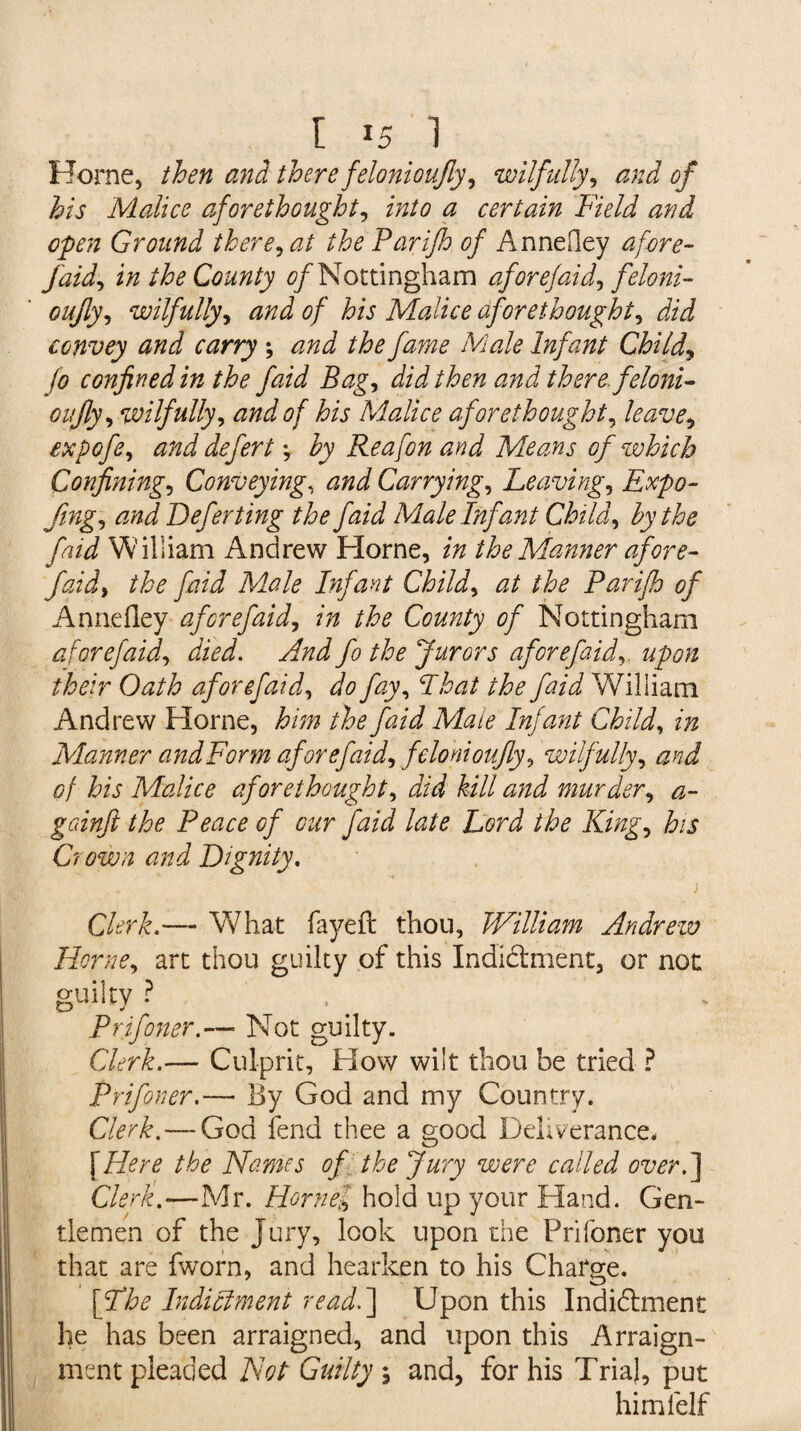 [ 15 ]
Horne, then and there feloniouſly, wilfully, and of
his Malice aforethought, into a certain Field and
open Ground there, at the Pariſh of Anneſley afore-
ſaid, in the County of Nottingham aforeſaid, feloni-
ouſly, wilfully, and of his Malice aforethought, did
convey and carry; and the ſame Male Infant Child,
ſo confined in the ſaid Bag, did then and there feloni-
ouſly, wilfully, and of his Malice aforethought, leave,
expoſe, and deſert; by Reaſon and Means of which
Confining, Conveying, and Carrying, Leaving, Expo-
ſing, and Deſerting the ſaid Male Infant Child, by the
ſaid William Andrew Horne, in the Manner afore-
ſaid, the ſaid Male Infant Child, at the Pariſh of
Anneſley aforeſaid, in the County of Nottingham
aforeſaid, died. And ſo the Jurors aforeſaid, upon
their Oath aforeſaid, do ſay, That the ſaid William
Andrew Horne, him the ſaid Male Infant Child, in
Manner and Form aforeſaid, feloniouſly, wilfully, and
of his Malice aforethought, did kill and murder, a-
gainſt the Peace of our ſaid late Lord the King, his
Crown and Dignity.
Clerk.— What ſayeſt thou, William Andrew
Horne, art thou guilty of this Indictment, or not
guilty ?
Priſoner.— Not guilty.
Clerk.— Culprit, How wilt thou be tried ?
Priſoner.— By God and my Country.
Clerk.—God ſend thee a good Deliverance.
[Here the Names of the Jury were called over.]
Clerk.—Mr. Horne, hold up your Hand. Gen-
tlemen of the Jury, look upon the Priſoner you
that are ſworn, and hearken to his Charge.
[The Indictment read.] Upon this Indictment
he has been arraigned, and upon this Arraign-
ment pleaded Not Guilty; and, for his Trial, put
himſelf